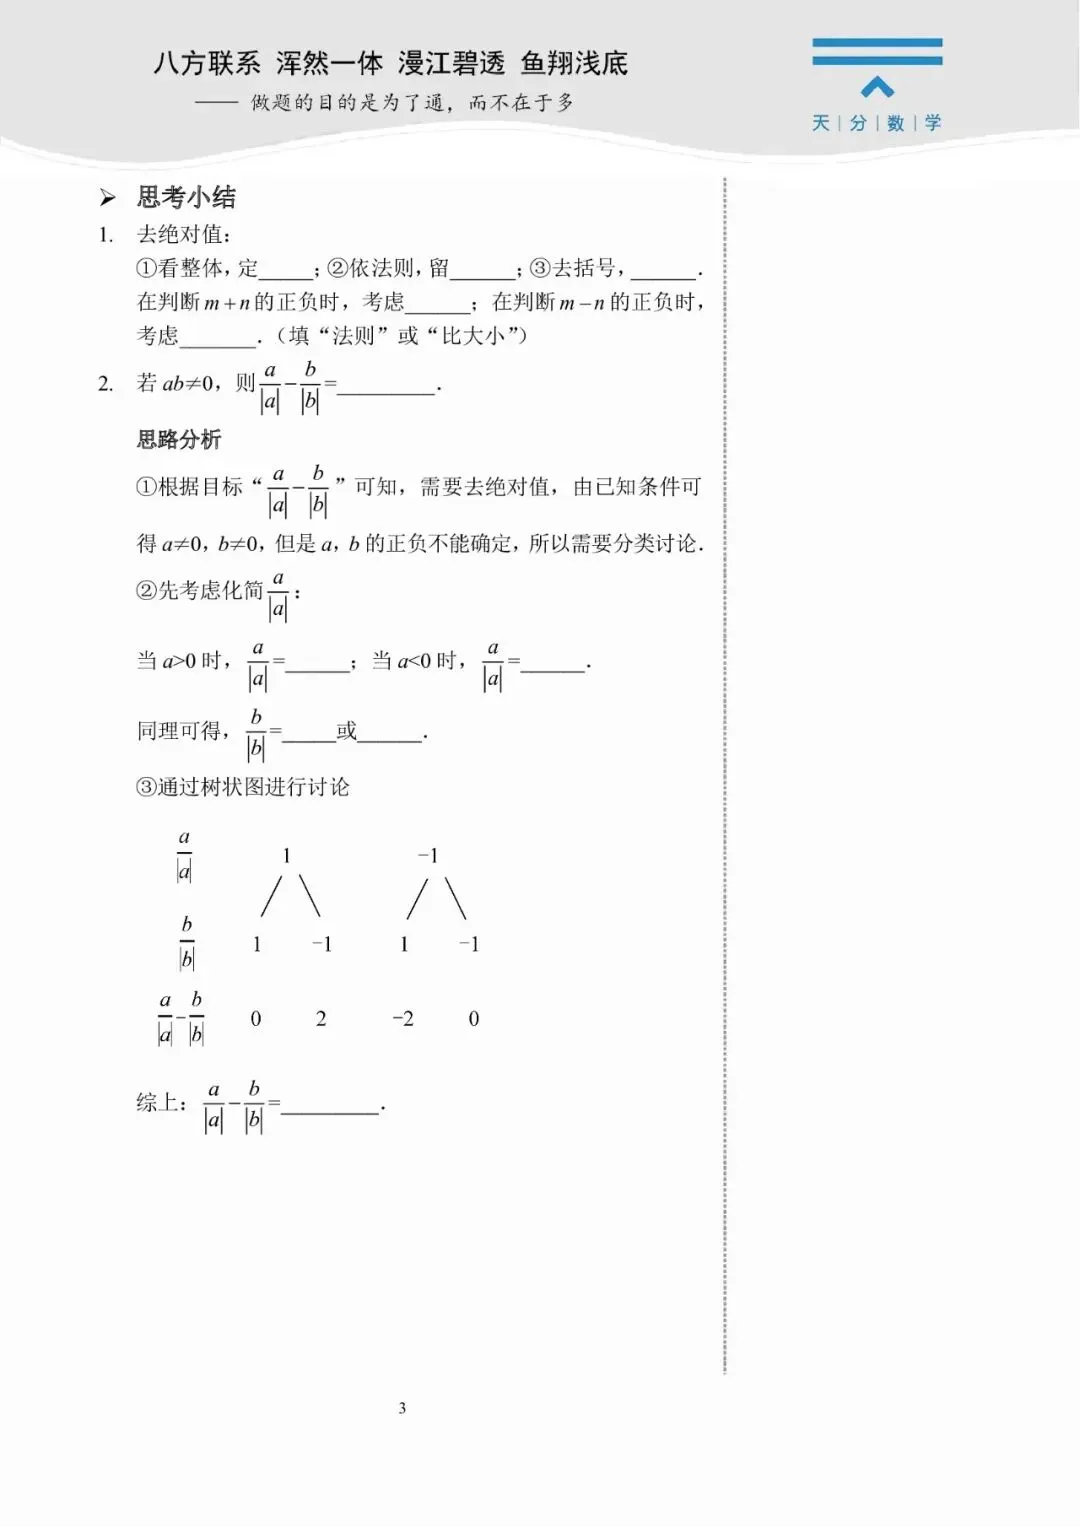 八方联系 浑然一体 漫江碧透 鱼翔浅底
—— 做题的目的是为了通，而不在于多
天|分|数|学
➢ 思考小结
1. 去绝对值：
①看整体，定_____；②依法则，留______；③去括号，______．
在判断 m+n 的正负时，考虑______；在判断 m−n 的正负时，
考虑_______．（填“法则”或“比大小”）
2. 若 ab≠0，则 a/|a| − b/|b| =_________．
思路分析
①根据目标“ a/|a| − b/|b| ”可知，需要去绝对值，由已知条件可
得 a≠0，b≠0，但是 a，b 的正负不能确定，所以需要分类讨论．
②先考虑化简 a/|a|：
当 a>0 时， a/|a| =______；当 a<0 时， a/|a| =______．
同理可得， b/|b| =_____或______．
③通过树状图进行讨论
a/|a| 1 −1
b/|b| 1 −1 1 −1
a/|a| − b/|b| 0 2 −2 0
综上： a/|a| − b/|b| =_________．
3